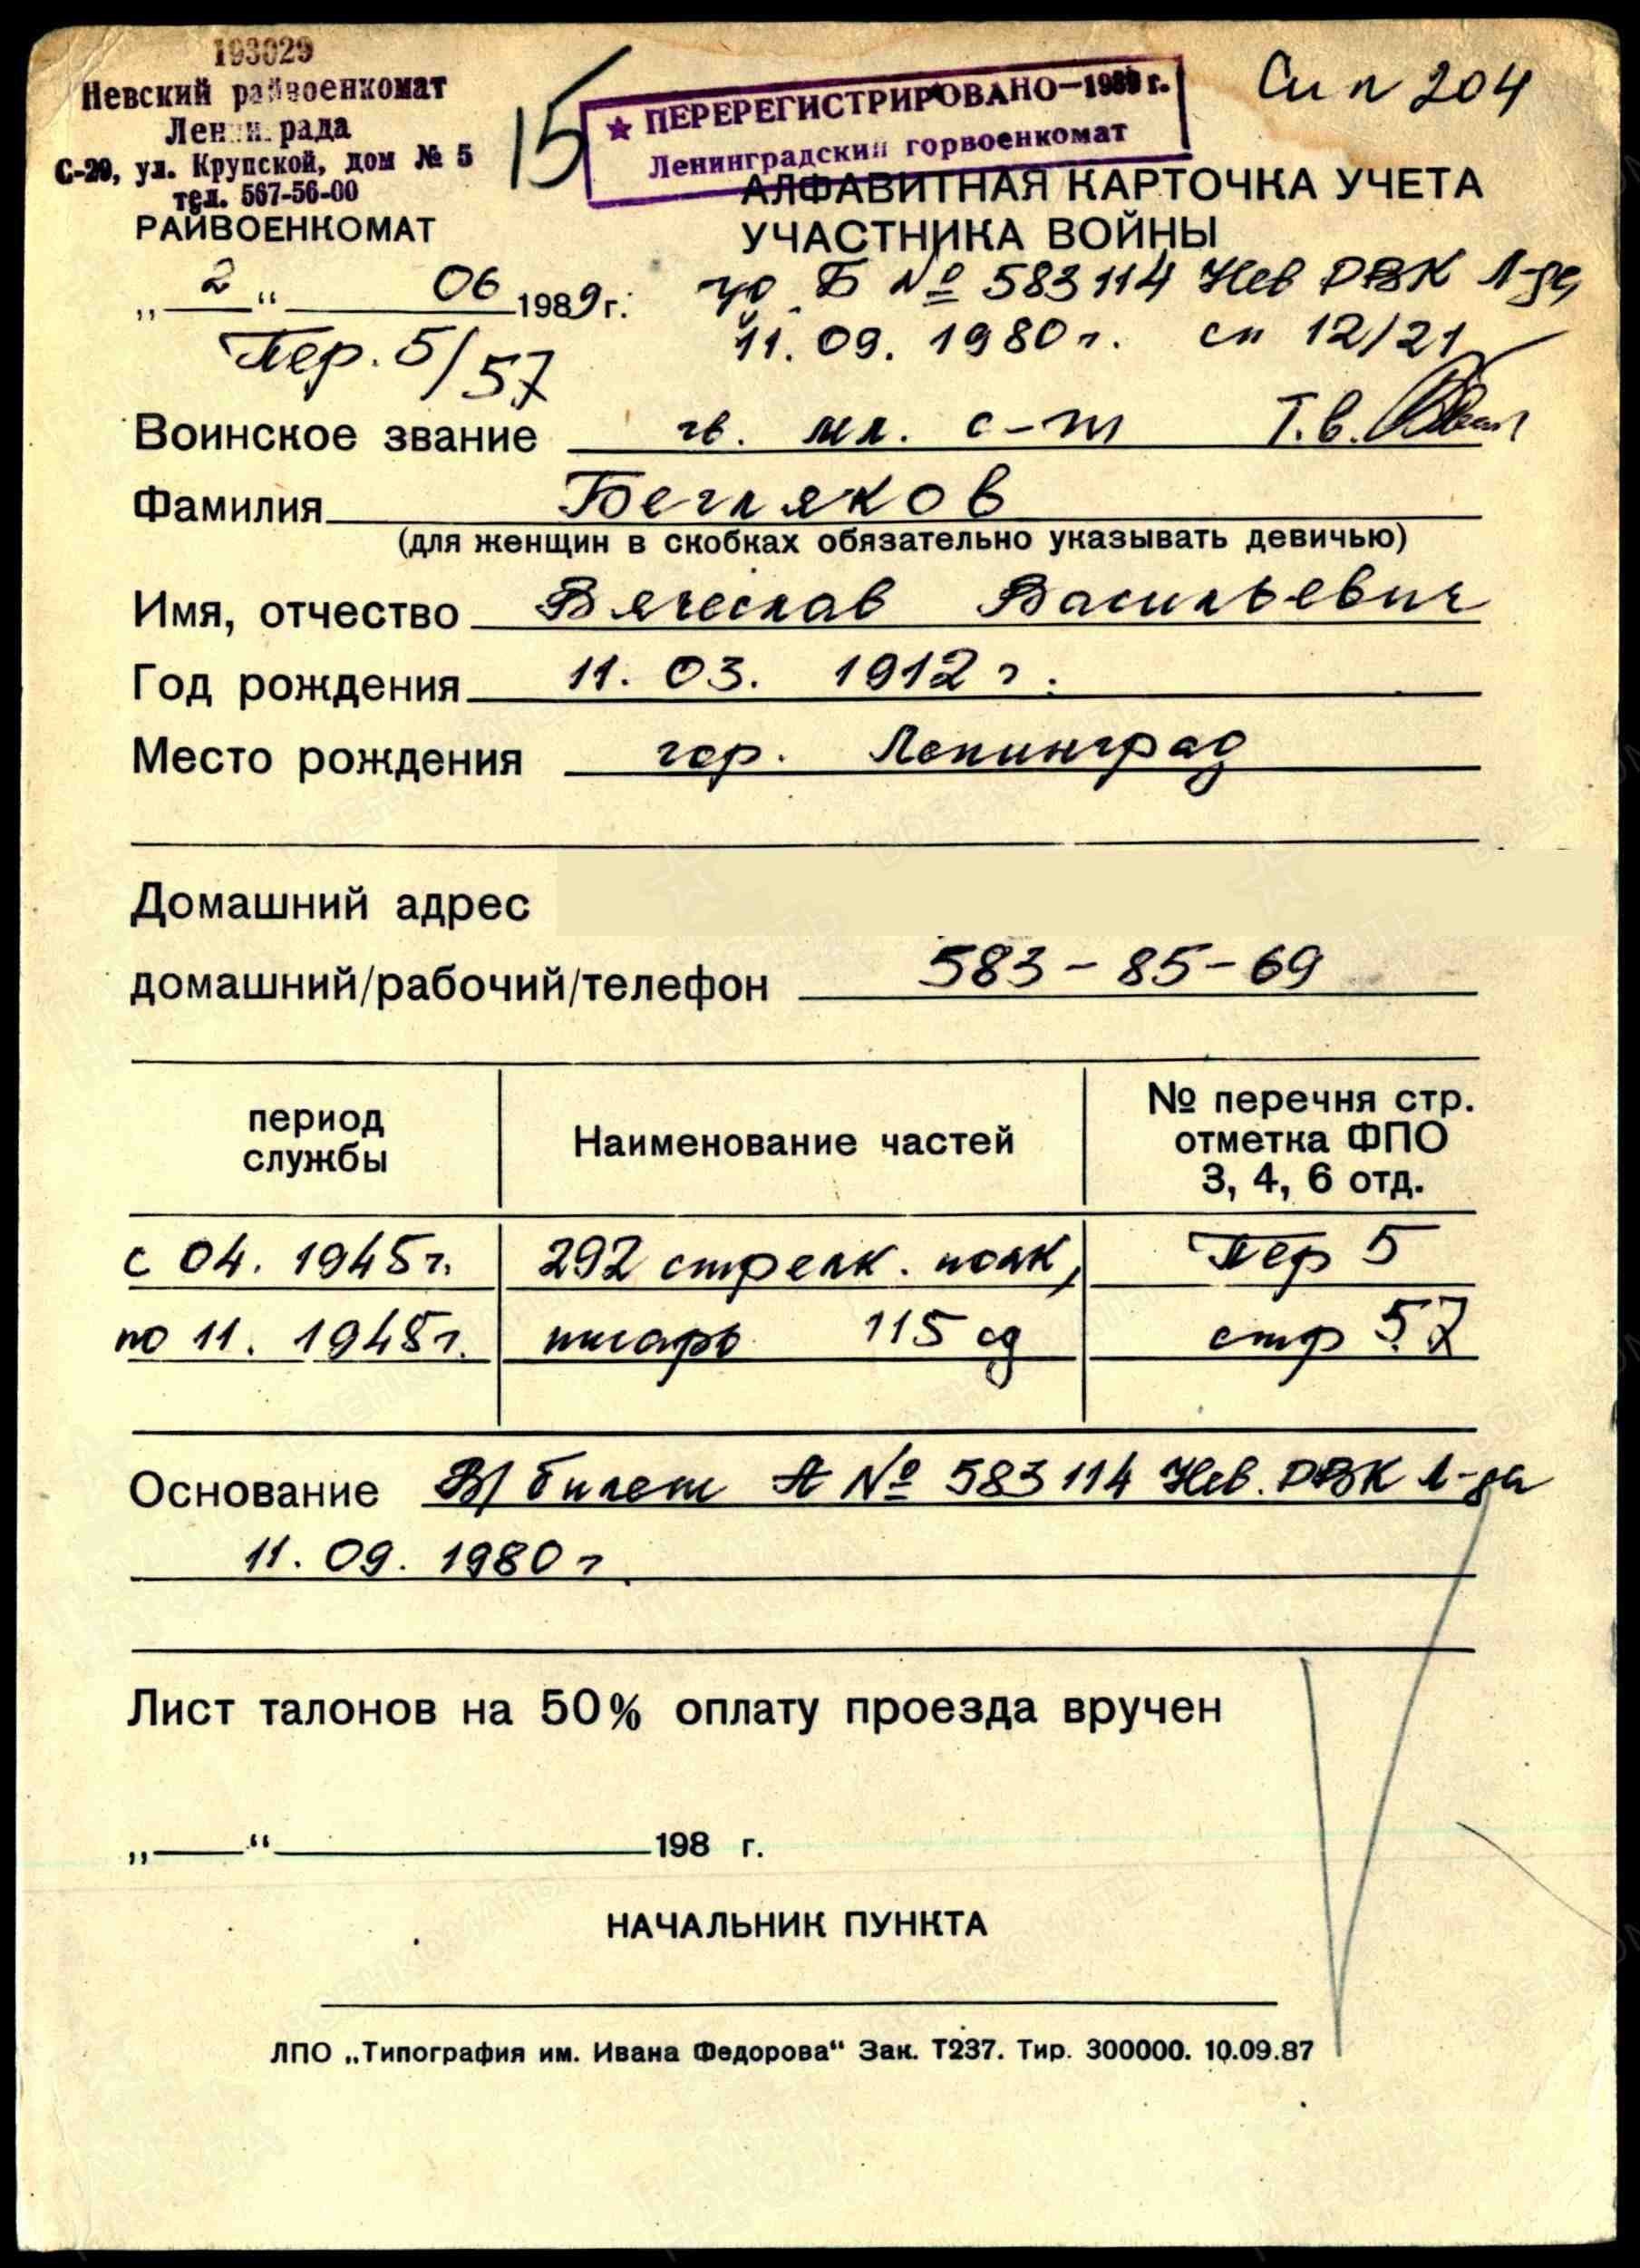 193029
Невский райвоенкомат
Ленинграда
С-29, ул. Крупской, дом № 5
тел. 567-56-00
РАЙВОЕНКОМАТ
15
★ ПЕРЕРЕГИСТРИРОВАНО—1989 г.
Ленинградский горвоенкомат
Сип 204
АЛФАВИТНАЯ КАРТОЧКА УЧЕТА
УЧАСТНИКА ВОЙНЫ
„2“ 06 1989г.
уд. Б № 583114 Нев РВК Л-да
11.09.1980г. сп 12/21
Пер. 5/57
Воинское звание гв. мл. с-т Т.в.
Фамилия Бегляков
(для женщин в скобках обязательно указывать девичью)
Имя, отчество Вячеслав Васильевич
Год рождения 11.03. 1912 г.
Место рождения гор. Ленинград
Домашний адрес
домашний/рабочий/телефон 583-85-69
период службы Наименование частей № перечня стр. отметка ФПО 3, 4, 6 отд.
с 04. 1945г. 292 стрелк. полк, Пер 5
по 11. 1945г. писарь 115 сд стр 57
Основание В/билет А № 583114 Нев. РВК Л-да
11.09.1980г
Лист талонов на 50% оплату проезда вручен
„ “ 198 г.
НАЧАЛЬНИК ПУНКТА
ЛПО „Типография им. Ивана Федорова“ Зак. Т237. Тир. 300000. 10.09.87